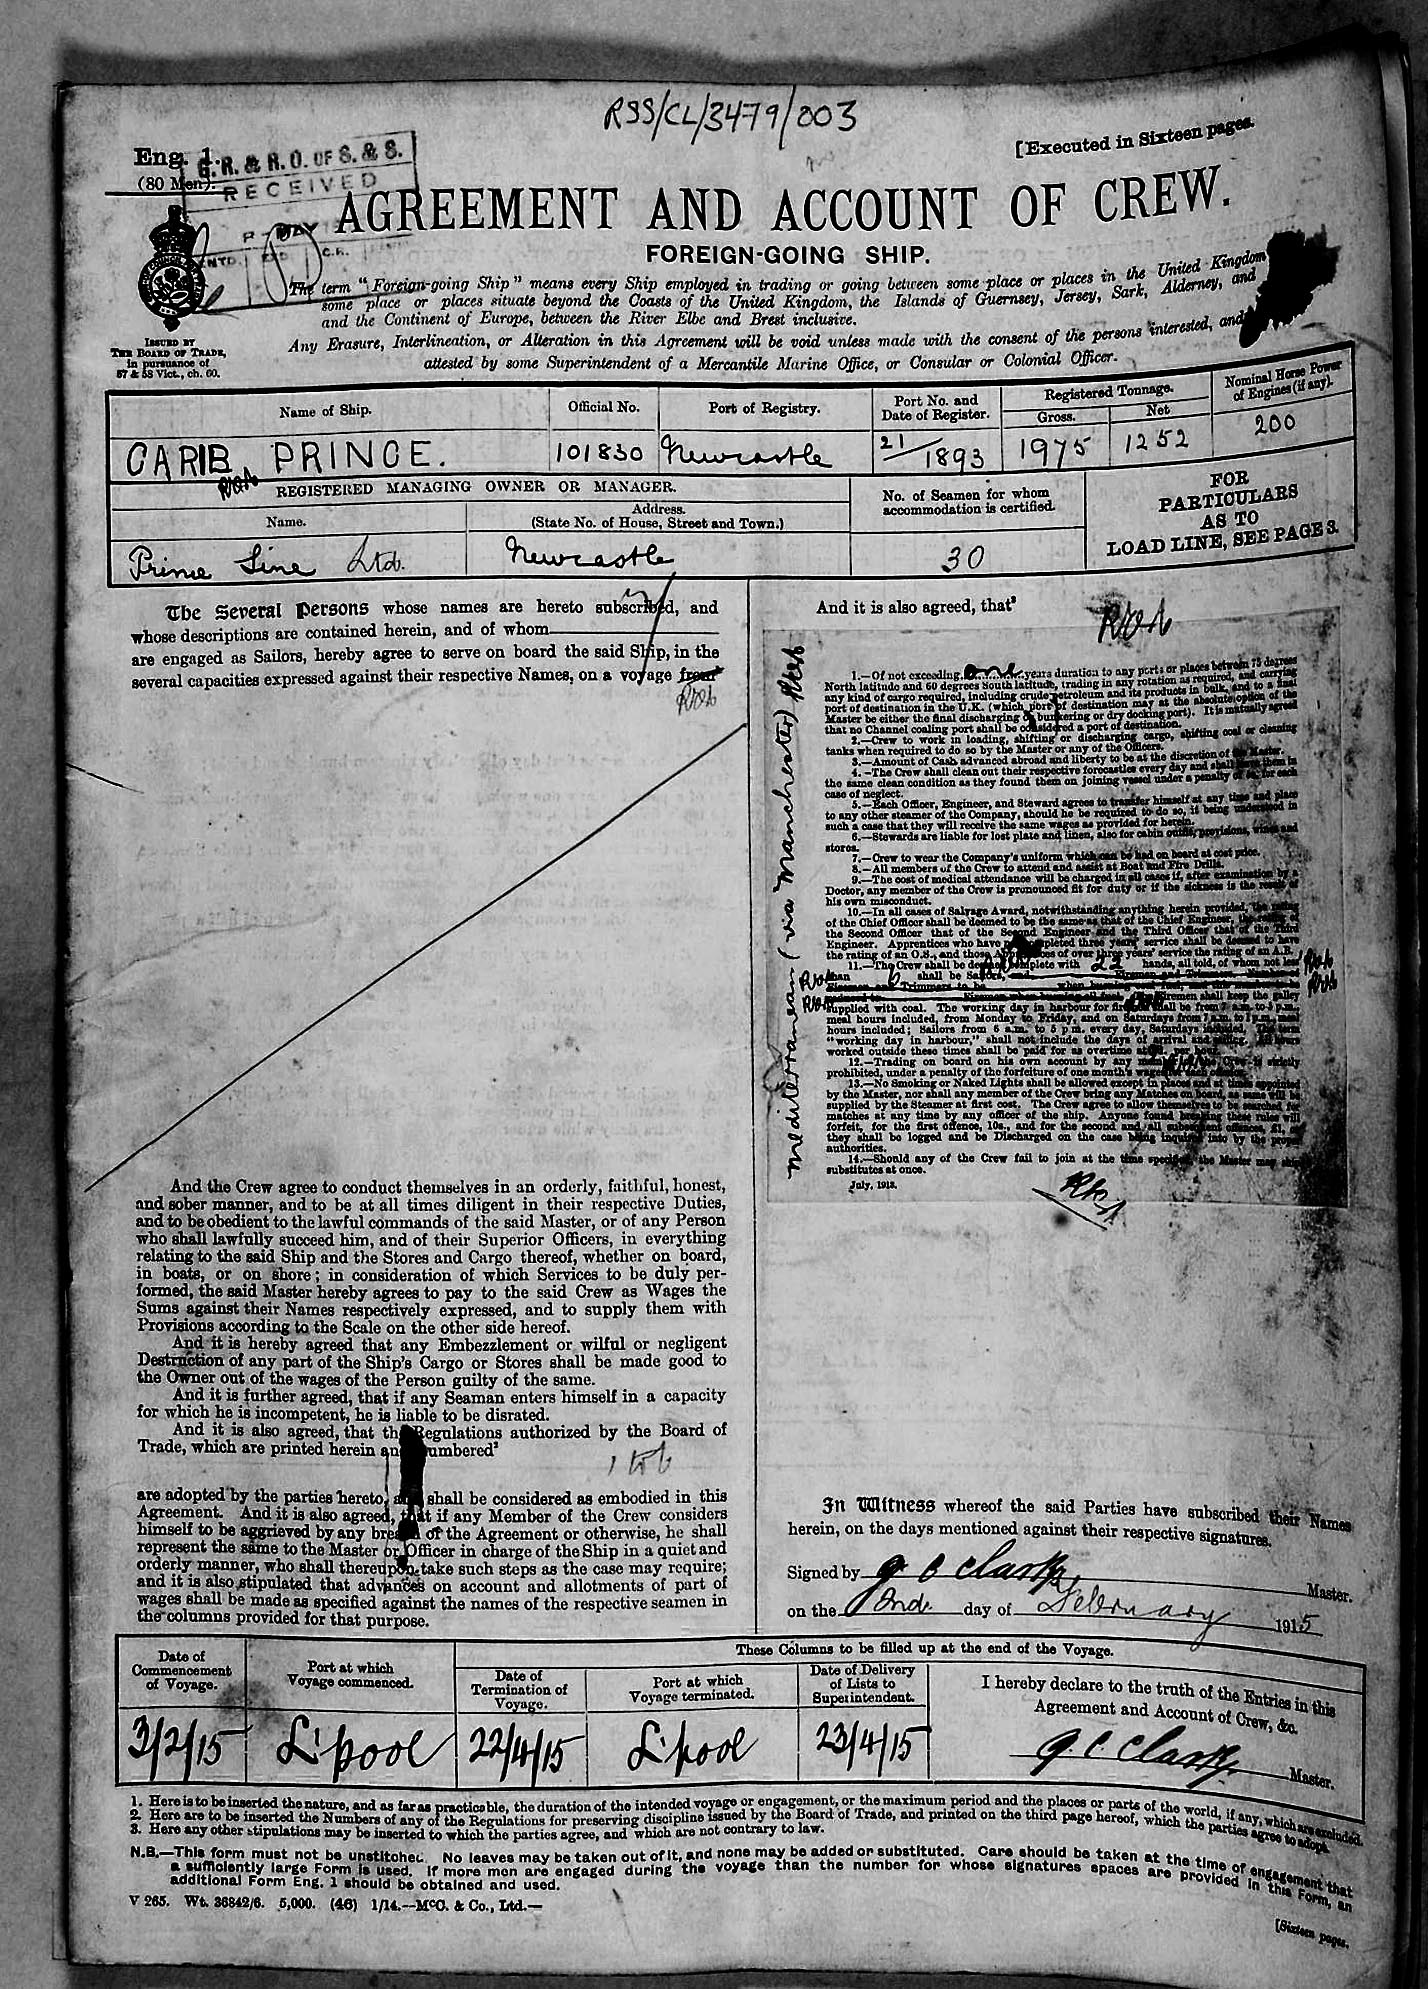 RSS/CL/3479/003
[Executed in Sixteen pages.
Eng. 1.
(80 Men).
G. R. & R. O. OF S. & S.
RECEIVED
MAY
AGREEMENT AND ACCOUNT OF CREW.
FOREIGN-GOING SHIP.
The term "Foreign-going Ship" means every Ship employed in trading or going between some place or places in the United Kingdom, and
some place or places situate beyond the Coasts of the United Kingdom, the Islands of Guernsey, Jersey, Sark, Alderney, and
and the Continent of Europe, between the River Elbe and Brest inclusive.
Any Erasure, Interlineation, or Alteration in this Agreement will be void unless made with the consent of the persons interested, and
attested by some Superintendent of a Mercantile Marine Office, or Consular or Colonial Officer.
ISSUED BY
THE BOARD OF TRADE,
in pursuance of
57 & 58 Vict., ch. 60.
Name of Ship.
Official No.
Port of Registry.
Port No. and
Date of Register.
Registered Tonnage.
Gross.
Net
Nominal Horse Power
of Engines (if any).
CARIB PRINCE.
101830
Newcastle
21/1893
1975
1252
200
REGISTERED MANAGING OWNER OR MANAGER.
Name.
Address.
(State No. of House, Street and Town.)
No. of Seamen for whom
accommodation is certified.
FOR
PARTICULARS
AS TO
LOAD LINE, SEE PAGE 3.
Prince Line Ltd.
Newcastle
30
The Several Persons whose names are hereto subscribed, and
whose descriptions are contained herein, and of whom
are engaged as Sailors, hereby agree to serve on board the said Ship, in the
several capacities expressed against their respective Names, on a voyage from
And the Crew agree to conduct themselves in an orderly, faithful, honest,
and sober manner, and to be at all times diligent in their respective Duties,
and to be obedient to the lawful commands of the said Master, or of any Person
who shall lawfully succeed him, and of their Superior Officers, in everything
relating to the said Ship and the Stores and Cargo thereof, whether on board,
in boats, or on shore; in consideration of which Services to be duly per-
formed, the said Master hereby agrees to pay to the said Crew as Wages the
Sums against their Names respectively expressed, and to supply them with
Provisions according to the Scale on the other side hereof.
And it is hereby agreed that any Embezzlement or wilful or negligent
Destruction of any part of the Ship's Cargo or Stores shall be made good to
the Owner out of the wages of the Person guilty of the same.
And it is further agreed, that if any Seaman enters himself in a capacity
for which he is incompetent, he is liable to be disrated.
And it is also agreed, that the Regulations authorized by the Board of
Trade, which are printed herein and numbered²
1 to 6
are adopted by the parties hereto, and shall be considered as embodied in this
Agreement. And it is also agreed, that if any Member of the Crew considers
himself to be aggrieved by any breach of the Agreement or otherwise, he shall
represent the same to the Master or Officer in charge of the Ship in a quiet and
orderly manner, who shall thereupon take such steps as the case may require;
and it is also stipulated that advances on account and allotments of part of
wages shall be made as specified against the names of the respective seamen in
the columns provided for that purpose.
And it is also agreed, that³
Mediterranean (via Manchester)
1.—Of not exceeding one years duration to any ports or places between 75 degrees
North latitude and 60 degrees South latitude, trading in any rotation as required, and carrying
any kind of cargo required, including crude petroleum and its products in bulk, and to a final
port of destination in the U.K. (which port of destination may at the absolute option of the
Master be either the final discharging or bunkering or dry docking port). It is mutually agreed
that no Channel coaling port shall be considered a port of destination.
2.—Crew to work in loading, shifting or discharging cargo, shifting coal or cleaning
tanks when required to do so by the Master or any of the Officers.
3.—Amount of Cash advanced abroad and liberty to be at the discretion of the Master.
4.—The Crew shall clean out their respective forecastles every day and shall leave them in
the same clean condition as they found them on joining vessel under a penalty of 5s. for each
case of neglect.
5.—Each Officer, Engineer, and Steward agrees to transfer himself at any time and place
to any other steamer of the Company, should he be required to do so, it being understood in
such a case that they will receive the same wages as provided for herein.
6.—Stewards are liable for lost plate and linen, also for cabin outfits, provisions, wines and
stores.
7.—Crew to wear the Company's uniform which can be had on board at cost price.
8.—All members of the Crew to attend and assist at Boat and Fire Drills.
9.—The cost of medical attendance will be charged in all cases if, after examination by a
Doctor, any member of the Crew is pronounced fit for duty or if the sickness is the result of
his own misconduct.
10.—In all cases of Salvage Award, notwithstanding anything herein provided, the rating
of the Chief Officer shall be deemed to be the same as that of the Chief Engineer, the rating of
the Second Officer that of the Second Engineer and the Third Officer that of the Third
Engineer. Apprentices who have not completed three years' service shall be deemed to have
the rating of an O.S., and those Apprentices of over three years' service the rating of an A.B.
11.—The Crew shall be deemed complete with 22 hands, all told, of whom not less
than 6 shall be Sailors,
Firemen shall keep the galley
supplied with coal. The working day in harbour for firemen shall be from 7 a.m. to 5 p.m.,
meal hours included, from Monday to Friday, and on Saturdays from 7 a.m. to 1 p.m., meal
hours included; Sailors from 6 a.m. to 5 p.m. every day, Saturdays included. The term
"working day in harbour," shall not include the days of arrival and sailing. All hours
worked outside these times shall be paid for as overtime at per hour.
12.—Trading on board on his own account by any member of the Crew is strictly
prohibited, under a penalty of the forfeiture of one month's wages for each offence.
13.—No Smoking or Naked Lights shall be allowed except in places and at times appointed
by the Master, nor shall any member of the Crew bring any Matches on board, as same will be
supplied by the Steamer at first cost. The Crew agree to allow themselves to be searched for
matches at any time by any officer of the ship. Anyone found breaking these rules will
forfeit, for the first offence, 10s., and for the second and all subsequent offences, £1, and
they shall be logged and be Discharged on the case being inquired into by the proper
authorities.
14.—Should any of the Crew fail to join at the time specified, the Master may ship
substitutes at once.
July, 1913.
In Witness whereof the said Parties have subscribed their Names
herein, on the days mentioned against their respective signatures.
Signed by G C Clark Master.
on the 2nd. day of February 1915
Date of
Commencement
of Voyage.
Port at which
Voyage commenced.
These Columns to be filled up at the end of the Voyage.
Date of
Termination of
Voyage.
Port at which
Voyage terminated.
Date of Delivery
of Lists to
Superintendent.
I hereby declare to the truth of the Entries in this
Agreement and Account of Crew, &c.
3/2/15
L'pool
22/4/15
L'pool
23/4/15
G. C. Clark Master.
1. Here is to be inserted the nature, and as far as practicable, the duration of the intended voyage or engagement, or the maximum period and the places or parts of the world, if any, which are excluded.
2. Here are to be inserted the Numbers of any of the Regulations for preserving discipline issued by the Board of Trade, and printed on the third page hereof, which the parties agree to adopt.
3. Here any other stipulations may be inserted to which the parties agree, and which are not contrary to law.
N.B.—This form must not be unstitched. No leaves may be taken out of it, and none may be added or substituted. Care should be taken at the time of engagement that
a sufficiently large Form is used. If more men are engaged during the voyage than the number for whose signatures spaces are provided in this Form, an
additional Form Eng. 1 should be obtained and used.
V 265. Wt. 36842/6. 5,000. (46) 1/14.—McC. & Co., Ltd.—
[Sixteen pages.